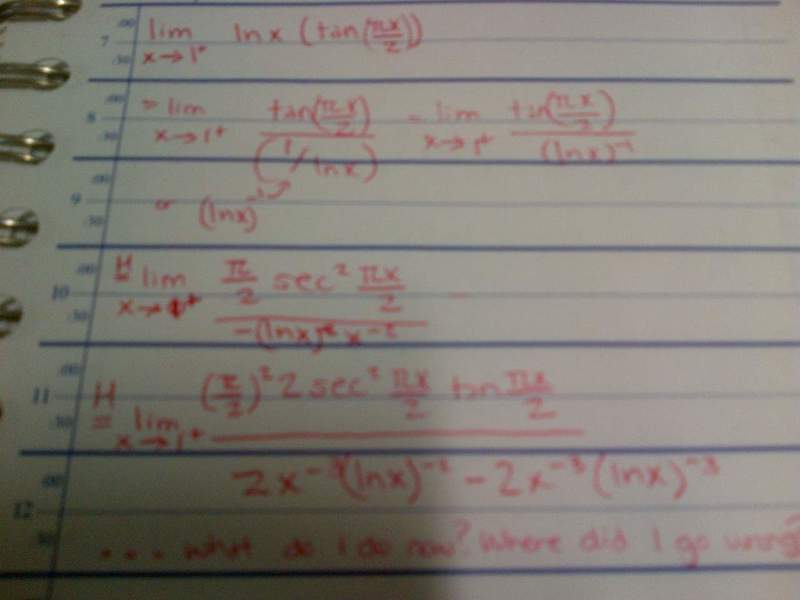 7 .00 .30 lim x→1⁺ ln x (tan(πx/2))
8 .00 .30 = lim x→1⁺ tan(πx/2) / (1/ln x) = lim x→1⁺ tan(πx/2) / (ln x)⁻¹
9 .00 .30 or (ln x)⁻¹
10 .00 .30 H= lim x→1⁺ π/2 sec² πx/2 / -(ln x)⁻² x⁻²
11 .00 .30 H= lim x→1⁺ (π/2)² 2 sec² πx/2 tan πx/2
12 .00 .30 2x⁻³(ln x)⁻² - 2x⁻³(ln x)⁻³
... what do I do now? Where did I go wrong?